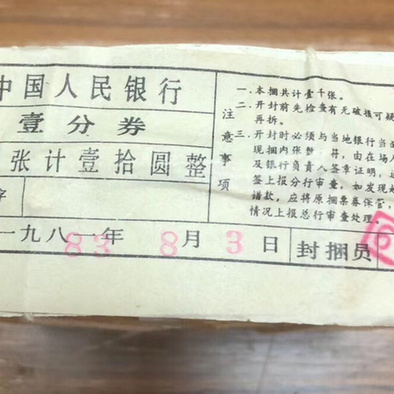 中国人民银行
壹分券
张计壹拾圆整
字
注意事项
一、本捆共计壹千张。
二、开封前先检查有无破损可疑
再拆。
三、开封时必须与当地银行当
现捆内张数 符,由在场人
及银行负责人签章证明,
签上报分行审查,如发现
错款,应将原捆票券保管,
情况上报总行审查处理。
一九八一年 83 8月3日 封捆员